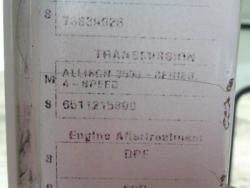 S
TRANSMISSION
M ALLISON 3000 - SERIES,
- SPEED
S 6511215890
Engine Aftertreatment
S DPF
S